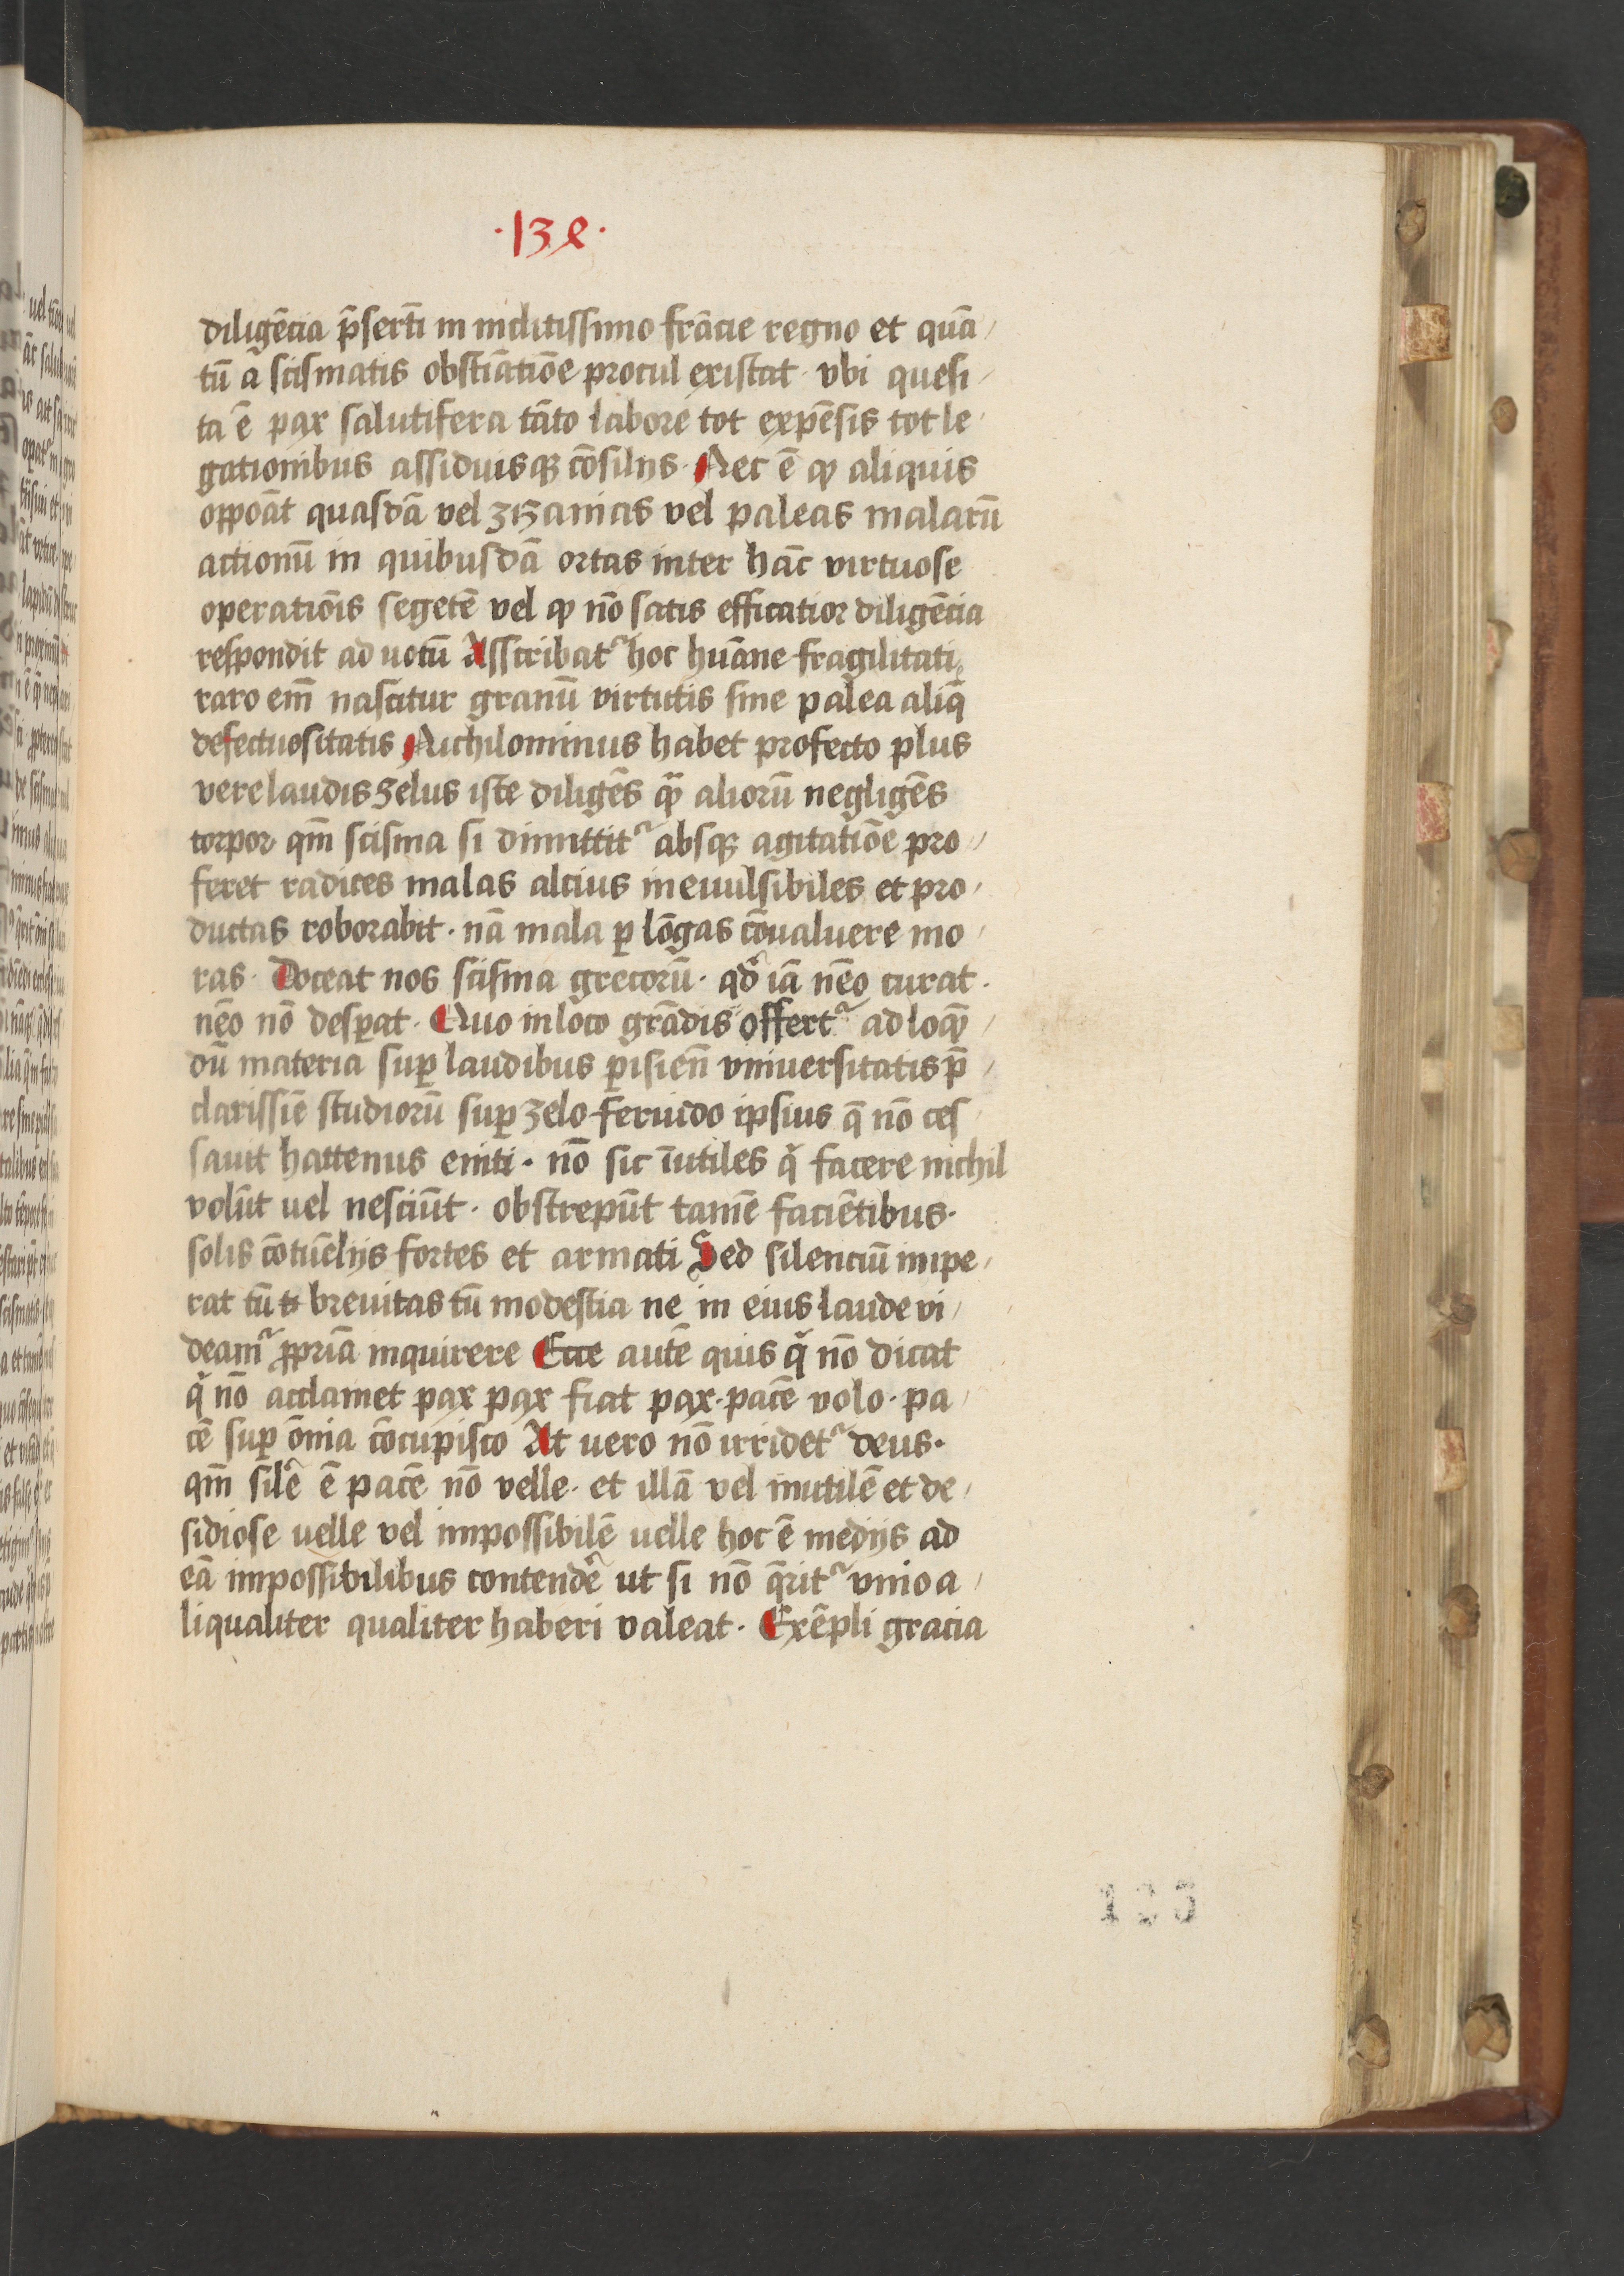 ·13ꝭ·
diligēcia p̄sertī in inclitissimo frācie regno et quā/
tū ā scismatis obstīatiōe procul existat · vbi quesi/
ta ē pax salutifera tāto labore tot expēsis tot le/
gationibus assiduisqꝫ cōsilijs · Nec ē ꝙ aliquis
oppōat quasdā vel zizanias vel paleas malarū
actionū in quibusdā ortas inter hāc virtuose
operatiōis segetē vel ꝙ nō satis efficatior diligēcia
respondit ad uotū Asscribat᷑ hoc hūane fragilitati.
raro em̄ nascitur granū virtutis sine palea aliq̄
defectuositatis Nichilominus habet profecto plus
vere laudis zelus iste diligēs qͣ aliorū negligēs
torpor qm̄ scisma si dimittit᷑ absqꝫ agitatiōe pro/
feret radices malas altius ineuulsibiles et pro/
ductas roborabit · nā mala ꝑ lōgas cōualuere mo/
ras · Doceat nos scisma grecorū · qd̓ iā nēo curat ·
nēo nō desꝑat · Quo in loco grādis offert᷑ ad loqn̄/
dū materia suꝑ laudibus ꝑisien̄ vniuersitatis p̄/
clarissīe studiorū suꝑ zelo feruido ipsius q̄ nō ces/
sauit hattenus eniti · nō sic īutiles q̓ facere nichil
volūt uel nesciūt · obstrepūt tamē faciētibus ·
solis cōtuēlijs fortes et armati Sed silenciū impe/
rat tū ts breuitas tū modestia ne in eius laude vi/
deam᷑ ꝓpriā inquirere Ecce autē quis q̓ nō dicat
q̓ nō acclamet pax pax fiat pax · pacē volo · pa/
cē suꝑ ōnia cōcupisco At vero nō irridet᷑ deus ·
qm̄ sil̓e ē pacē nō velle · et illā vel inutilē et de/
sidiose uelle vel impossibilē uelle hoc ē medijs ad
eā impossibilibus contend̓e ut si nō q̄rit᷑ vnio a/
liqualiter qualiter haberi valeat · Exēpli gracia
135